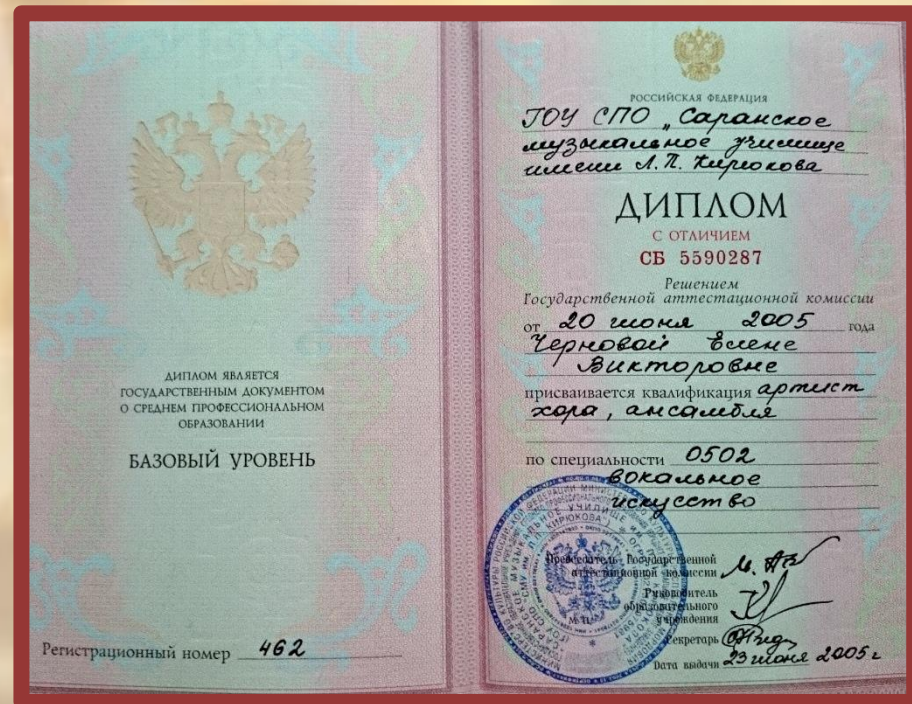 ДИПЛОМ ЯВЛЯЕТСЯ
ГОСУДАРСТВЕННЫМ ДОКУМЕНТОМ
О СРЕДНЕМ ПРОФЕССИОНАЛЬНОМ
ОБРАЗОВАНИИ
БАЗОВЫЙ УРОВЕНЬ
Регистрационный номер 462
РОССИЙСКАЯ ФЕДЕРАЦИЯ
ГОУ СПО „Саранское
музыкальное училище
имени Л.П. Кирюкова
ДИПЛОМ
С ОТЛИЧИЕМ
СБ 5590287
Решением
Государственной аттестационной комиссии
от 20 июня 2005 года
Черновой Елене
Викторовне
присваивается квалификация артист
хора, ансамбля
по специальности 0502
вокальное
искусство
Председатель Государственной
аттестационной комиссии
Руководитель
образовательного
учреждения
Секретарь
Дата выдачи 23 июня 2005 г